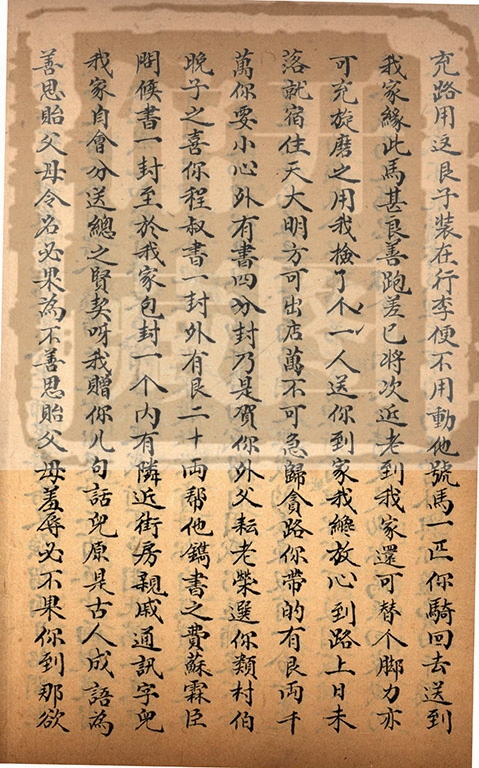 充路用这艮子装在行李便不用動他號馬一疋你騎回去送到
我家緣此馬甚良善跑差已將次近老到我家還可替个脚力亦
可充旋磨之用我撿了个一人送你到家我纔放心到路上日未
落就宿住天大明方可出店萬不可急歸貪路你帶的有艮両千
萬你要小心外有書四分封乃是賀你外父耘老柴選你類村伯
晚子之喜你程叔書一封外有艮二十両帮他鐫書之費蘇霖臣
問候書一封至於我家包封一个內有隣近街房親戚通訊字皃
我家自會分送總之賢契呀我贈你几句話皃原是古人成語為
善思貽父母令名必果為不善思貽父母羞辱必不果你到那欲